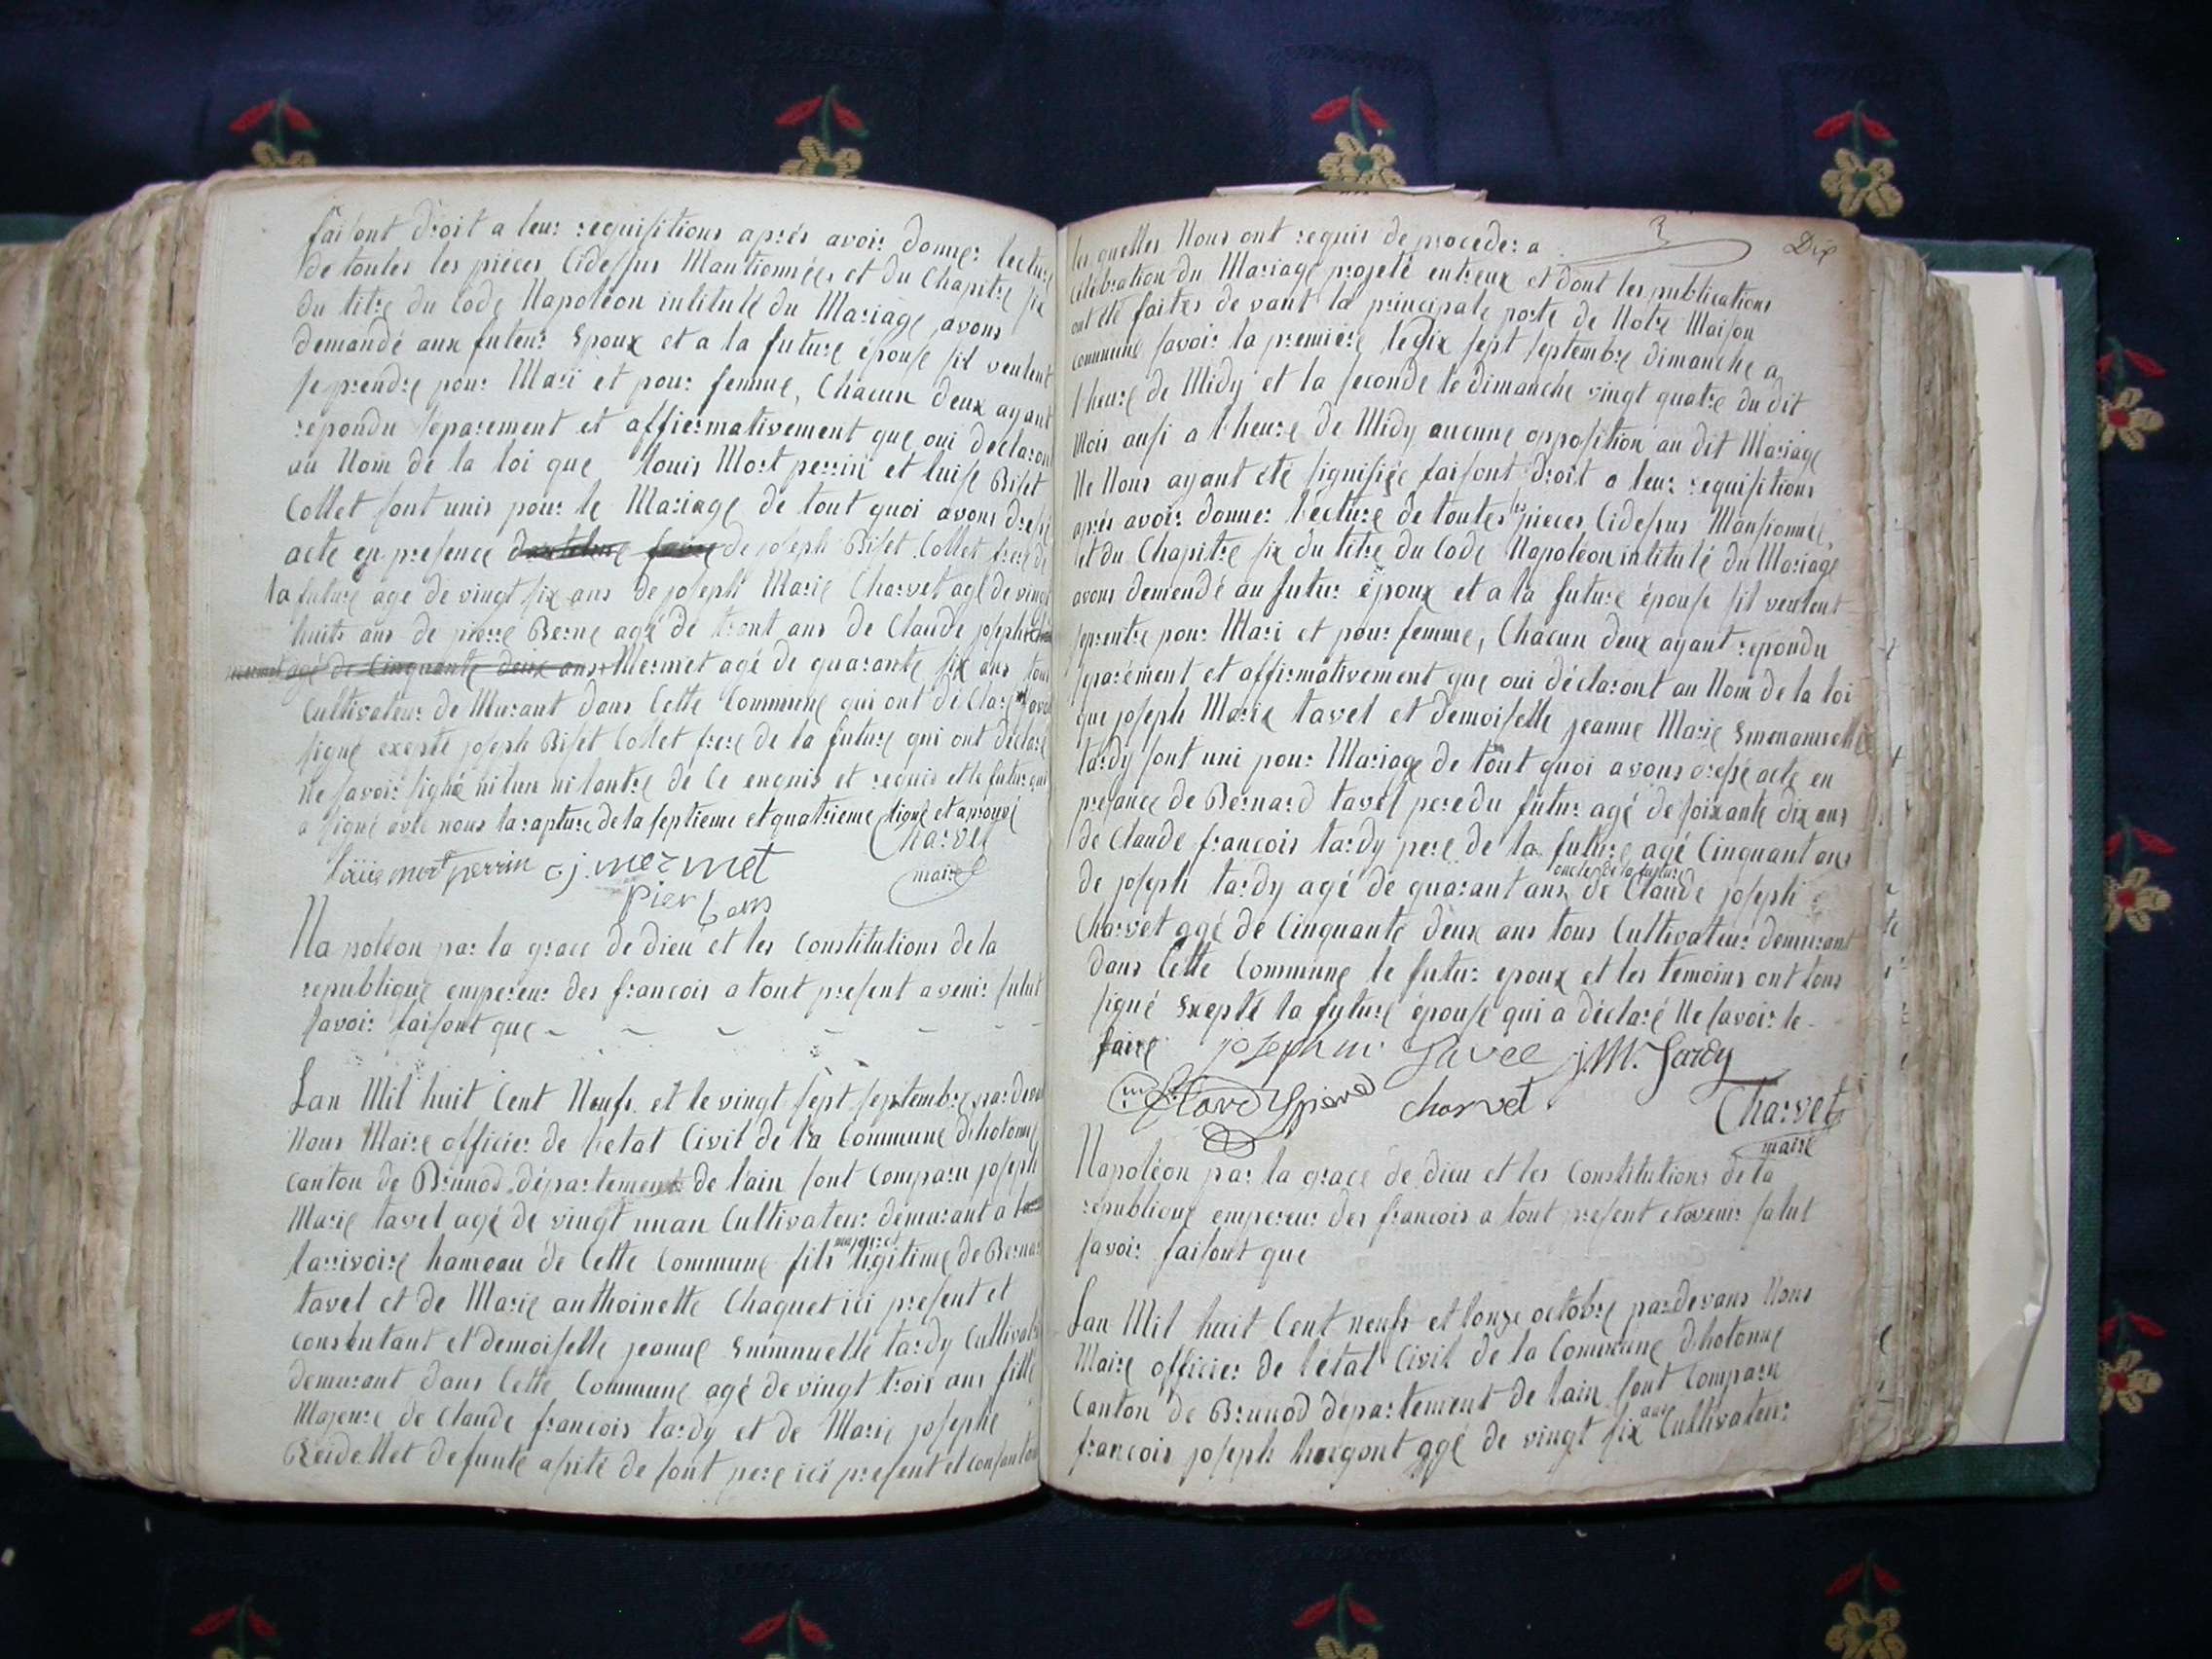 faisont droit a leur requisitions aprés avoir donner lecture
de toutes les piéces Cidessus Mantionnées et du Chapitre six
du titre du Code Napoléon intitulé du Mariage avons
demandé aux futeur Epoux et a la future épouse sil veulent
se prendre pour Mari et pour femme, Chacun deux ayant
répondu separement et affiermativement que oui declaront
au Nom de la loi que louis Mort perrin et luise Biset
Collet sont unis pour le Mariage de tout quoi avons dressé
acte en presence de joseph Biset Collet frere de
la future age de vingt six ans de joseph Marie Charvet agé de vingt
huits ans de pierre Berne agé de tront ans de Claude joseph
mermet agé de Cinquante deux ans Mermet agé de quarante six ans tous
Cultivateur de Murant dans Cette Commune qui ont de Claré avoir
signé exepté joseph Biset Collet frere de la future qui ont déclaré
Ne savoir signé ni lun ni lautre de Ce enquis et requis et le futur qui
a signé avec nous la rapture de la septieme et quatrieme ligne et aprouvé
Charvet
louis mort perrin c j mermet
maire
pier bern
Napoléon par la grace de dieu et les Constitutions de la
republique empereur des francois a tout present avenir salut
savoir faisont que
Lan Mil huit Cent Neufs et le vingt sept septembre pardevant
Nous Maire officier de letat Civil de la Commune dhotonne
canton de Brunod département de lain sont Comparu joseph
Marie tavel agé de vingt unan Cultivateur démurant a
larivoire hameau de Cette Commune fils majeur et légitime de Bernard
tavel et de Marie anthoinette Chaquet ici present et
consentant et demoiselle jeanne Emmnuelle tardy Cultivatr
demurant dans Cette Commune agé de vingt trois ans fille
Majeure de Claude francois tardy et de Marie josephe
Reidellet defunte asité de sont pere ici present et consantant
Dix
les quelles Nous ont requis de proceder a
Célébration du Mariage projeté entreux et dont les publications
ont été faites de vant la principale porte de Notre Maison
commune savoir la premiére le dix sept septembre dimanche a
lheure de Midy et la seconde le dimanche vingt quatre du dit
Mois ausi a lheure de Midy aucune opposition au dit Mariage
Ne Nous ayant été signifiée faisont droit a leur requisitions
aprés avoir donner lecture de toutes les pieces Cidesus Mansionnée,
et du Chapitre six du titre du Code Napoléon intitulé du Mariage
avons demendé au futur époux et a la future épouse sil veulent
seprentre pour Mari et pour femme, Chacun deux ayant repondu
sparément et affirmativement que oui déclaront au Nom de la loi
que joseph Marie tavel et demoiselle jeanne Marie Emmanuelle
tardy sont uni pour Mariage de tout quoi avons dressé acte en
présance de Bernard tavel pere du futur agé de soixante dix ans
de Claude francois tardy pere de la future agé Cinquant ans
de joseph tardy agé de quarant ans oncle de la future de Claude joseph
Charvet agé de Cinquante deux ans tous Cultivateur demurant
dans Cette Commune le futur epoux et les temoins ont tous
signé Exepté la future épouse qui a déclaré Ne savoir le
faire joseph m tavel j.M. tardy
tardy pierre charvet Charvet
maire
Napoléon par la grace de dieu et les Constitutions de la
république empereur des francois a tout present et avenir salut
savoir faisont que
Lan Mil huit Cent neufs et lonze octobre pardevans Nous
Maire officier de létat Civil de la Commune dhotonne
Canton de Brunod département de lain sont Comparu
francois joseph hugont agé de vingt six ans Cultivateur